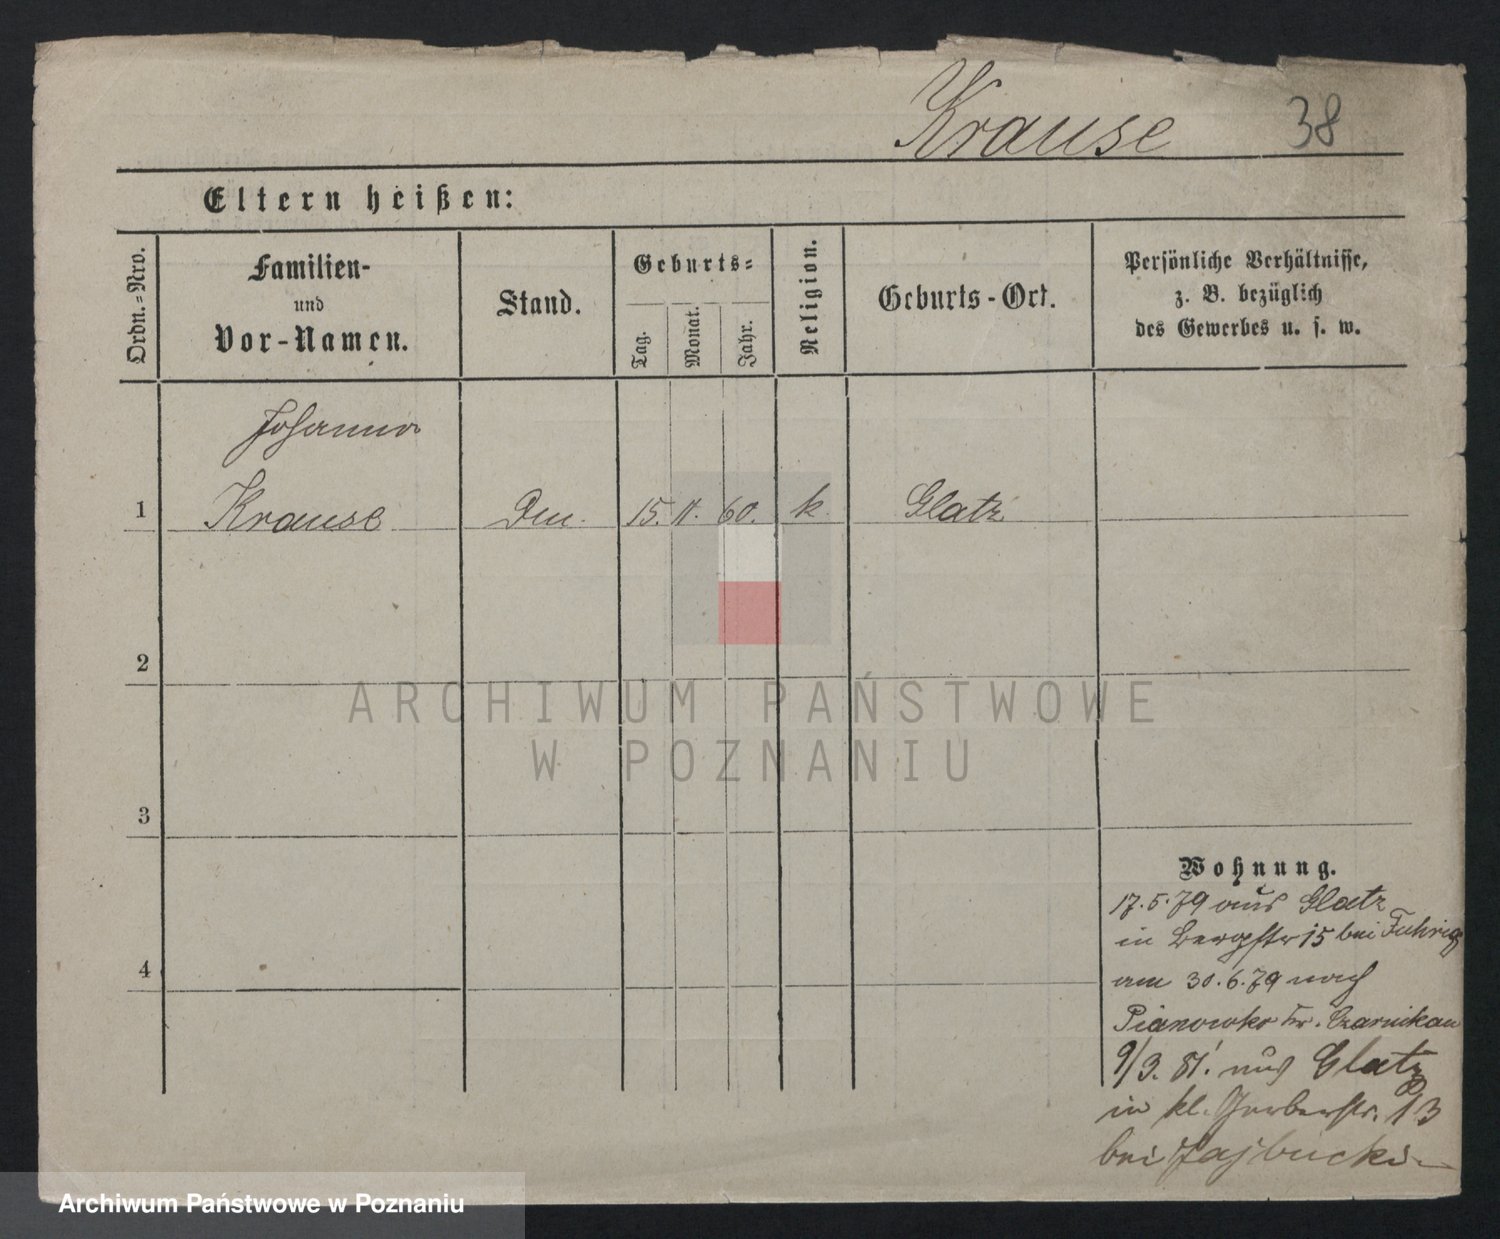 Krause 38
Eltern heißen:
Ordn.=Nro.
Familien-
und
Vor-Namen.
Stand.
Geburts=
Tag.
Monat.
Jahr.
Religion.
Geburts-Ort.
Persönliche Verhältnisse,
z. B. bezüglich
des Gewerbes u. s. w.
Johanna
1 Krause 15. 11. 60. k Glatz
2
3
4
Wohnung.
17.5.79 aus Glatz
in Bergstr 15 bei Fuhrig
am 30.6.79 nach
Pianowko Kr. Czarnikau
9/3. 81. aus Glatz
in kl. Gerberstr. 13
bei
ARCHIWUM PAŃSTWOWE
W POZNANIU
Archiwum Państwowe w Poznaniu